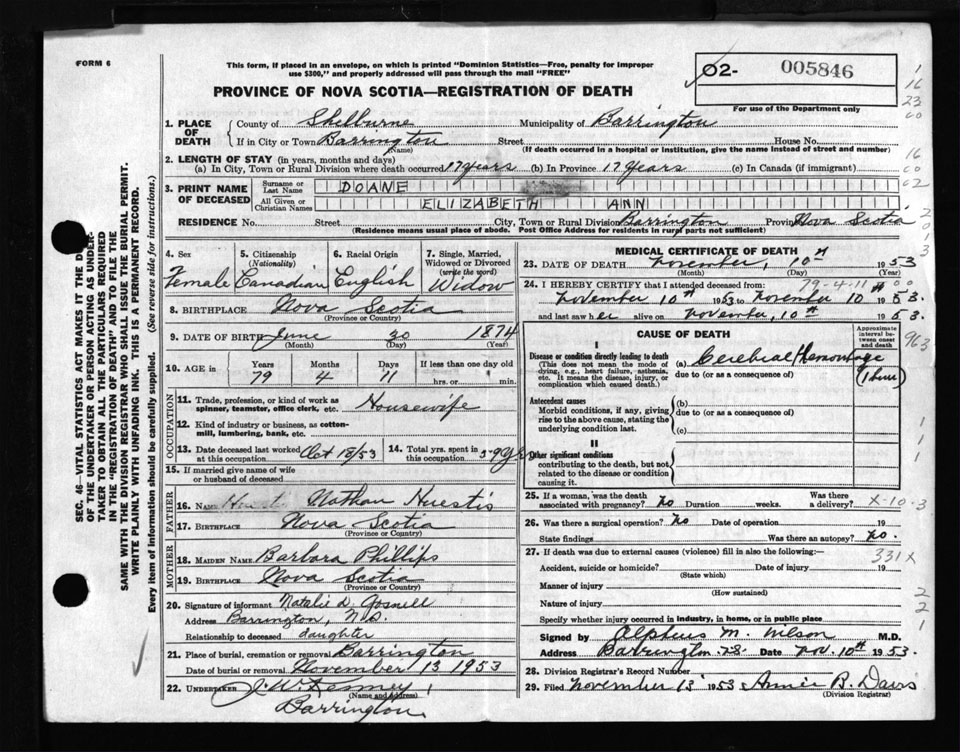 FORM 6
This form, if placed in an envelope, on which is printed "Dominion Statistics—Free, penalty for improper
use $300," and properly addressed will pass through the mail "FREE"
O2- 005846
For use of the Department only
PROVINCE OF NOVA SCOTIA—REGISTRATION OF DEATH
1. PLACE OF DEATH
County of Shelburne Municipality of Barrington
If in City or Town Barrington Street House No.
(Name) (If death occurred in a hospital or institution, give the name instead of street and number)
2. LENGTH OF STAY (in years, months and days)
(a) In City, Town or Rural Division where death occurred 17 years (b) In Province 17 years (c) In Canada (if immigrant)
3. PRINT NAME OF DECEASED
Surname or Last Name DOANE
All Given or Christian Names ELIZABETH ANN
RESIDENCE No. Street City, Town or Rural Division Barrington Province Nova Scotia
(Residence means usual place of abode. Post Office Address for residents in rural parts not sufficient)
4. Sex Female
5. Citizenship (Nationality) Canadian
6. Racial Origin English
7. Single, Married, Widowed or Divorced (write the word) Widow
8. BIRTHPLACE Nova Scotia
(Province or Country)
9. DATE OF BIRTH June 30 1874
(Month) (Day) (Year)
10. AGE in Years 79 Months 4 Days 11 If less than one day old hrs. or min.
OCCUPATION
11. Trade, profession, or kind of work as spinner, teamster, office clerk, etc. Housewife
12. Kind of industry or business, as cotton-mill, lumbering, bank, etc.
13. Date deceased last worked at this occupation Oct 18/53
14. Total yrs. spent in this occupation 59 yrs
15. If married give name of wife or husband of deceased
FATHER
16. NAME Nathan Huestis
17. BIRTHPLACE Nova Scotia
(Province or Country)
MOTHER
18. MAIDEN NAME Barbara Phillips
19. BIRTHPLACE Nova Scotia
(Province or Country)
20. Signature of informant Natalie D. Gosnell
Address Barrington, N.S.
Relationship to deceased daughter
21. Place of burial, cremation or removal Barrington
Date of burial or removal November 13 1953
22. UNDERTAKER J. W. Kenney,
(Name and Address)
Barrington.
MEDICAL CERTIFICATE OF DEATH
23. DATE OF DEATH November, 10th 1953
(Month) (Day) (Year)
79-4-11
24. I HEREBY CERTIFY that I attended deceased from:
November 10th 1953 to November 10th 1953.
and last saw her alive on November, 10th 1953.
CAUSE OF DEATH
Approximate interval between onset and death
I
Disease or condition directly leading to death
(This does not mean the mode of dying, e.g., heart failure, asthenia, etc. It means the disease, injury, or complication which caused death.)
(a) Cerebral Hemorrhage
due to (or as a consequence of)
Antecedent causes
Morbid conditions, if any, giving rise to the above cause, stating the underlying condition last.
(b)
due to (or as a consequence of)
(c)
II
Other significant conditions
contributing to the death, but not related to the disease or condition causing it.
25. If a woman, was the death associated with pregnancy? No Duration weeks. Was there a delivery?
X-10-3
26. Was there a surgical operation? No Date of operation 19
State findings Was there an autopsy? No.
27. If death was due to external causes (violence) fill in also the following:—
331X
Accident, suicide or homicide? Date of injury 19
(State which)
Manner of injury
(How sustained)
Nature of injury
Specify whether injury occurred in industry, in home, or in public place
Signed by Alpheus M. Wilson M.D.
Address Barrington N.S. Date Nov. 10th 1953.
28. Division Registrar's Record Number
29. Filed November 13 1953 Annie B. Davis
(Division Registrar)
SEC. 46—VITAL STATISTICS ACT MAKES IT THE
OF THE UNDERTAKER OR PERSON ACTING AS UNDER-
TAKER TO OBTAIN ALL THE PARTICULARS REQUIRED
IN THE "REGISTRATION OF DEATH" AND TO FILE THE
SAME WITH THE DIVISION REGISTRAR WHO SHALL ISSUE THE BURIAL PERMIT.
WRITE PLAINLY WITH UNFADING INK. THIS IS A PERMANENT RECORD.
Every item of information should be carefully supplied. (See reverse side for instructions.)
1
16
23
00
16
00
02
2
0
3
963
1
1
1
2
2
1